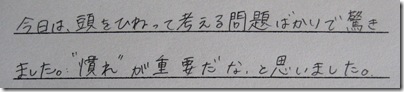 今日は、頭をひねって考える問題ばかりで驚き
ました。“慣れ”が重要だな、と思いました。